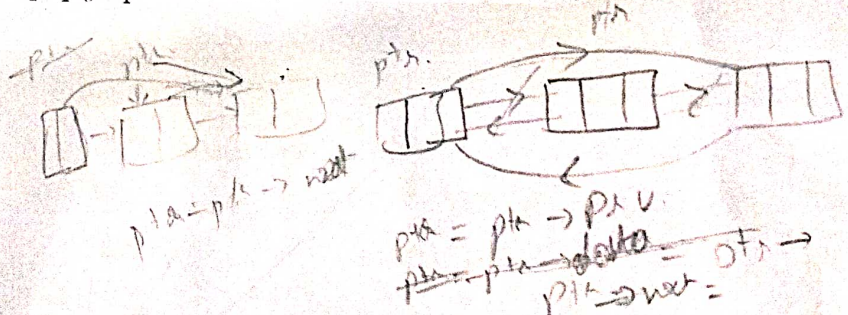 ptr
ptr
ptr
ptr.
ptr = ptr -> next
ptr = ptr -> prv.
ptr = ptr -> data = ptr ->
ptr -> next =